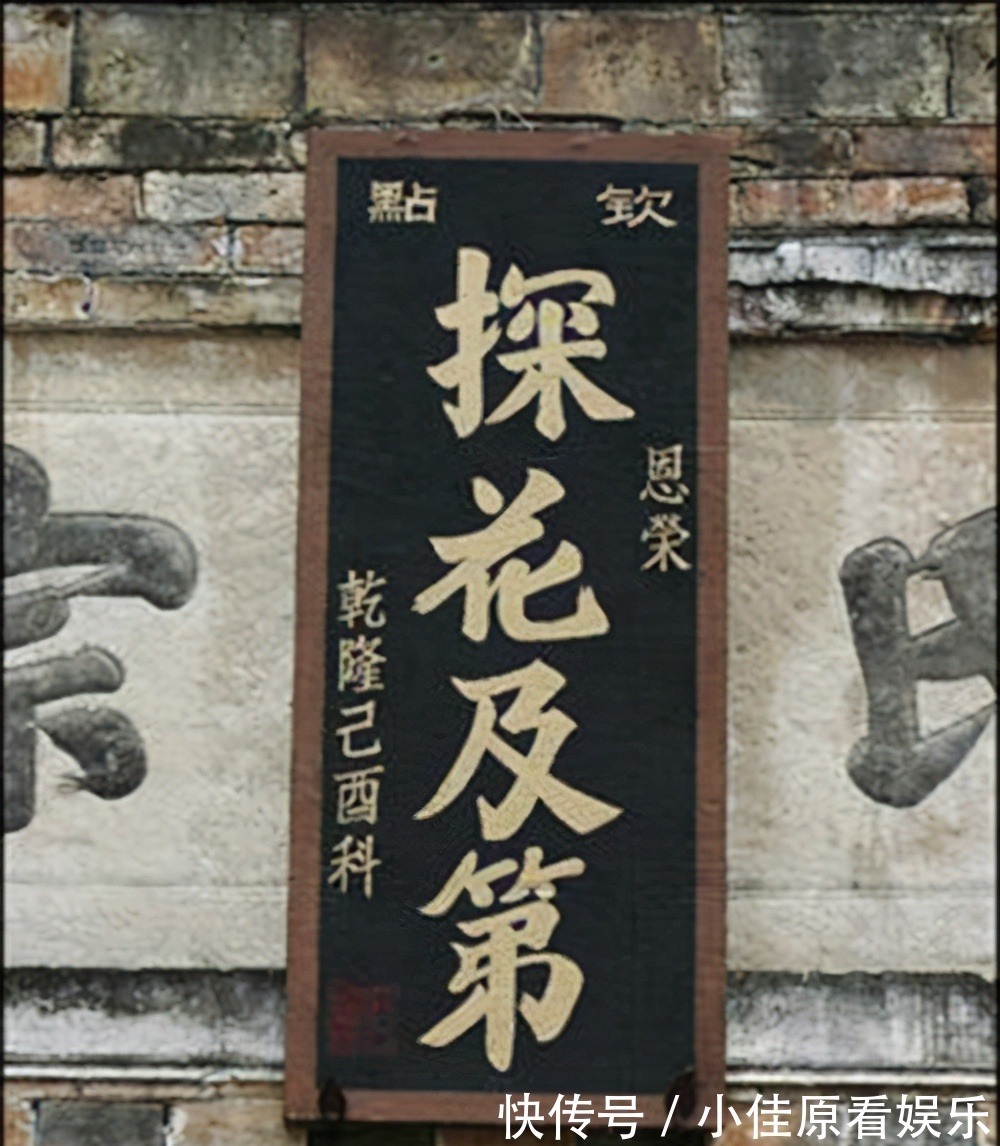 欽點
探花及第
恩榮
乾隆己酉科
快传号 / 小佳原看娱乐